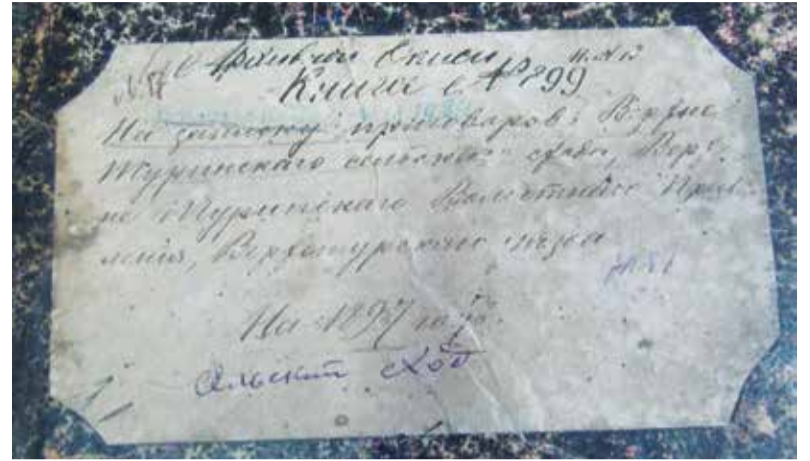 Архивной Описи
Книга с № 899
На записку приговоровъ: Верхне
Туринскаго сельскаго схода, Верх
не Туринскаго Волостнаго Прав
ленія, Верхотурскаго уезда
На 1897 годъ.
Сельский сход